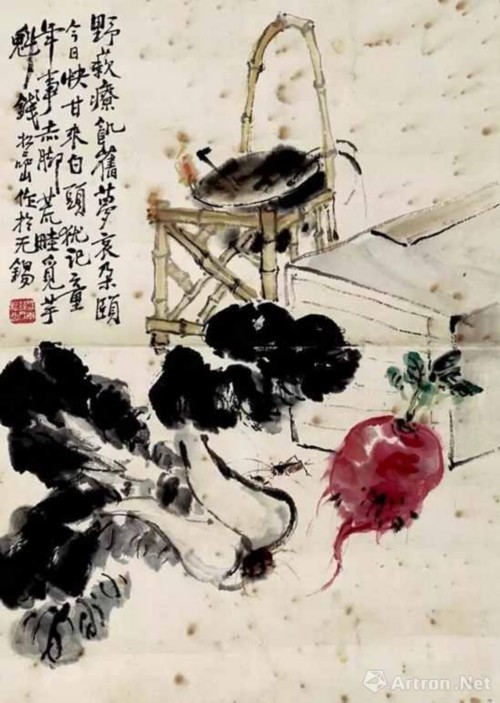 野蔌療飢舊夢哀朵頤
今日快甘來白頭猶記童
年事赤脚荒畦覓芋
魁 錢松嵒作於无錫
Artron.Net